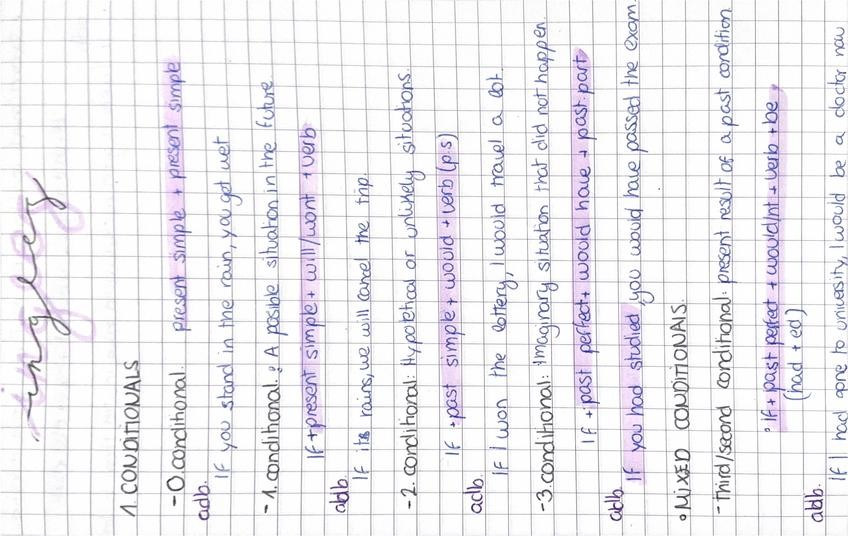 inglés
1. CONDITIONALS
-0.conditional. present simple + present simple
adb. If you stand in the rain, you get wet
-1.conditional.: A posible situation in the future
If + present simple + will/wont + verb
adb. If its rains, we will cancel the trip
-2. conditional: Hypotetical or unlikely situations.
If + past simple + would + verb (p.s)
adb. If I won the lottery, I would travel a lot.
-3.conditional: Imaginary situation that did not happen.
If + past perfect + would have + past.part
adb. If you had studied, you would have passed the exam
• MIXED CONDITIONALS.
- Third/second conditional: present result of a past condition
• If + past perfect + would/nt + verb + be
(had + ed)
adb. If I had gone to univesity, I would be a doctor now